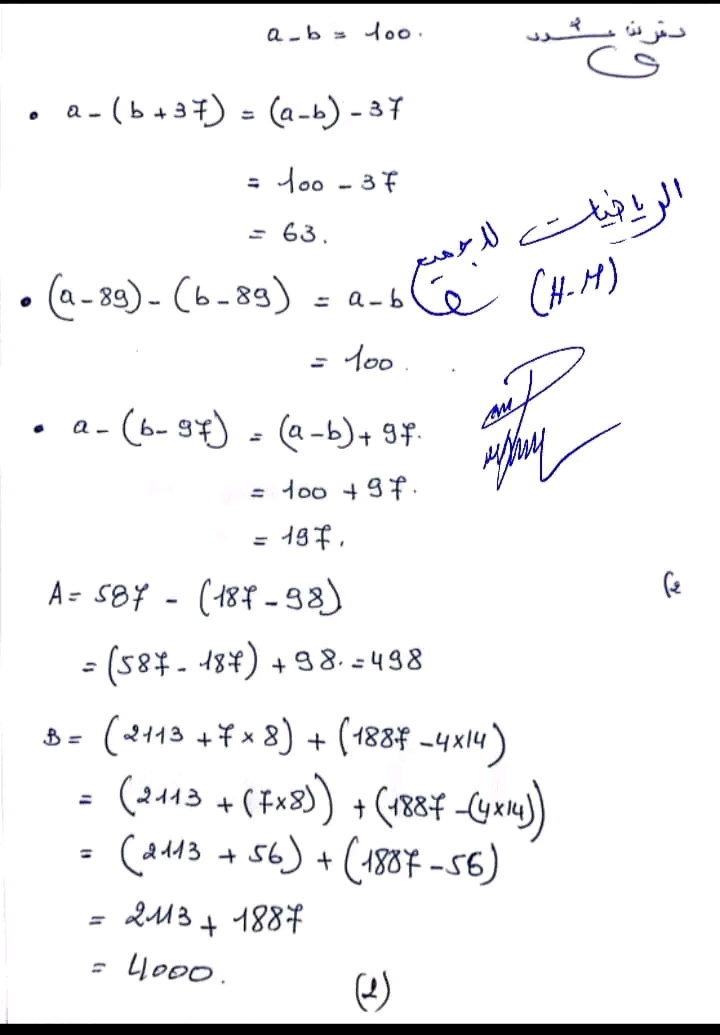 a - b = 100.
• a - (b + 37) = (a-b) - 37
= 100 - 37
= 63.
الرياضيات للجميع
(H-M)
• (a - 89) - (b - 89) = a - b
= 100.
• a - (b - 97) = (a - b) + 97.
= 100 + 97.
= 197.
A = 587 - (187 - 98)
= (587 - 187) + 98. = 498
B = (2113 + 7 × 8) + (1887 - 4×14)
= (2113 + (7×8)) + (1887 - (4×14))
= (2113 + 56) + (1887 - 56)
= 2113 + 1887
= 4000.
(2)